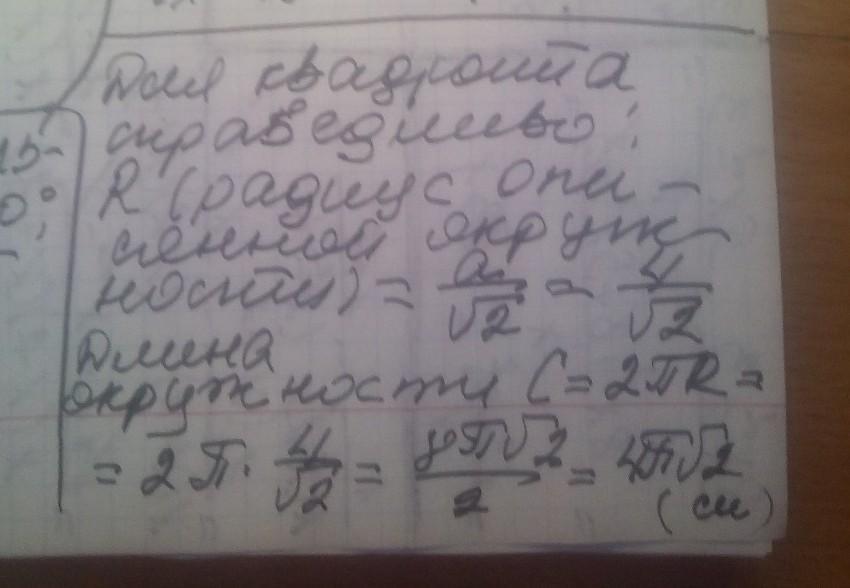 Для квадрата
справедливо:
R (радиус опи-
санной окруж-
ности) = a/√2 = 4/√2
Длина
окружности C = 2πR =
= 2π · 4/√2 = 8π√2/2 = 4π√2
(см)